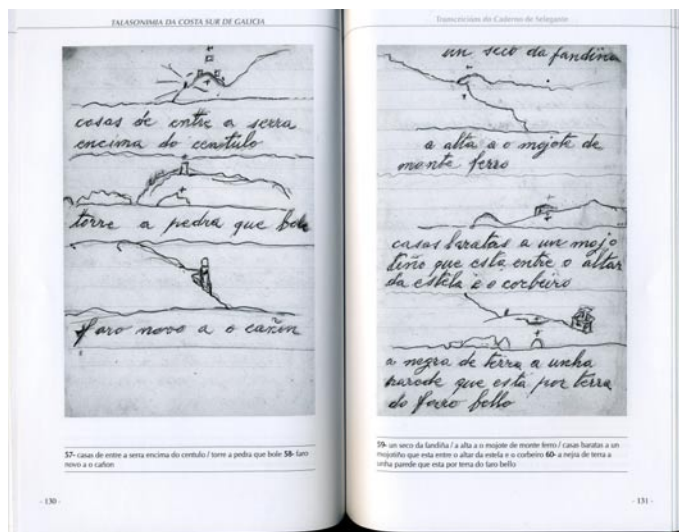 TALASONIMIA DA COSTA SUR DE GALICIA
casas de entre a serra
encima do centulo
torre a pedra que bole
faro novo a o cañon
57- casas de entre a serra encima do centulo / torre a pedra que bole 58- faro
novo a o cañon
- 130 -
Transcricións do Caderno de Selegante
un seco da fandiña
a alta a o mojote de
monte ferro
casas baratas a un mojo
tiño que esta entre o altar
da estela e o corbeiro
a negra de terra a unha
parede que esta por terra
do faro bello
59- un seco da fandiña / a alta a o mojote de monte ferro / casas baratas a un
mojotiño que esta entre o altar da estela e o corbeiro 60- a nejra de terra a
unha parede que esta por terra do faro bello
- 131 -